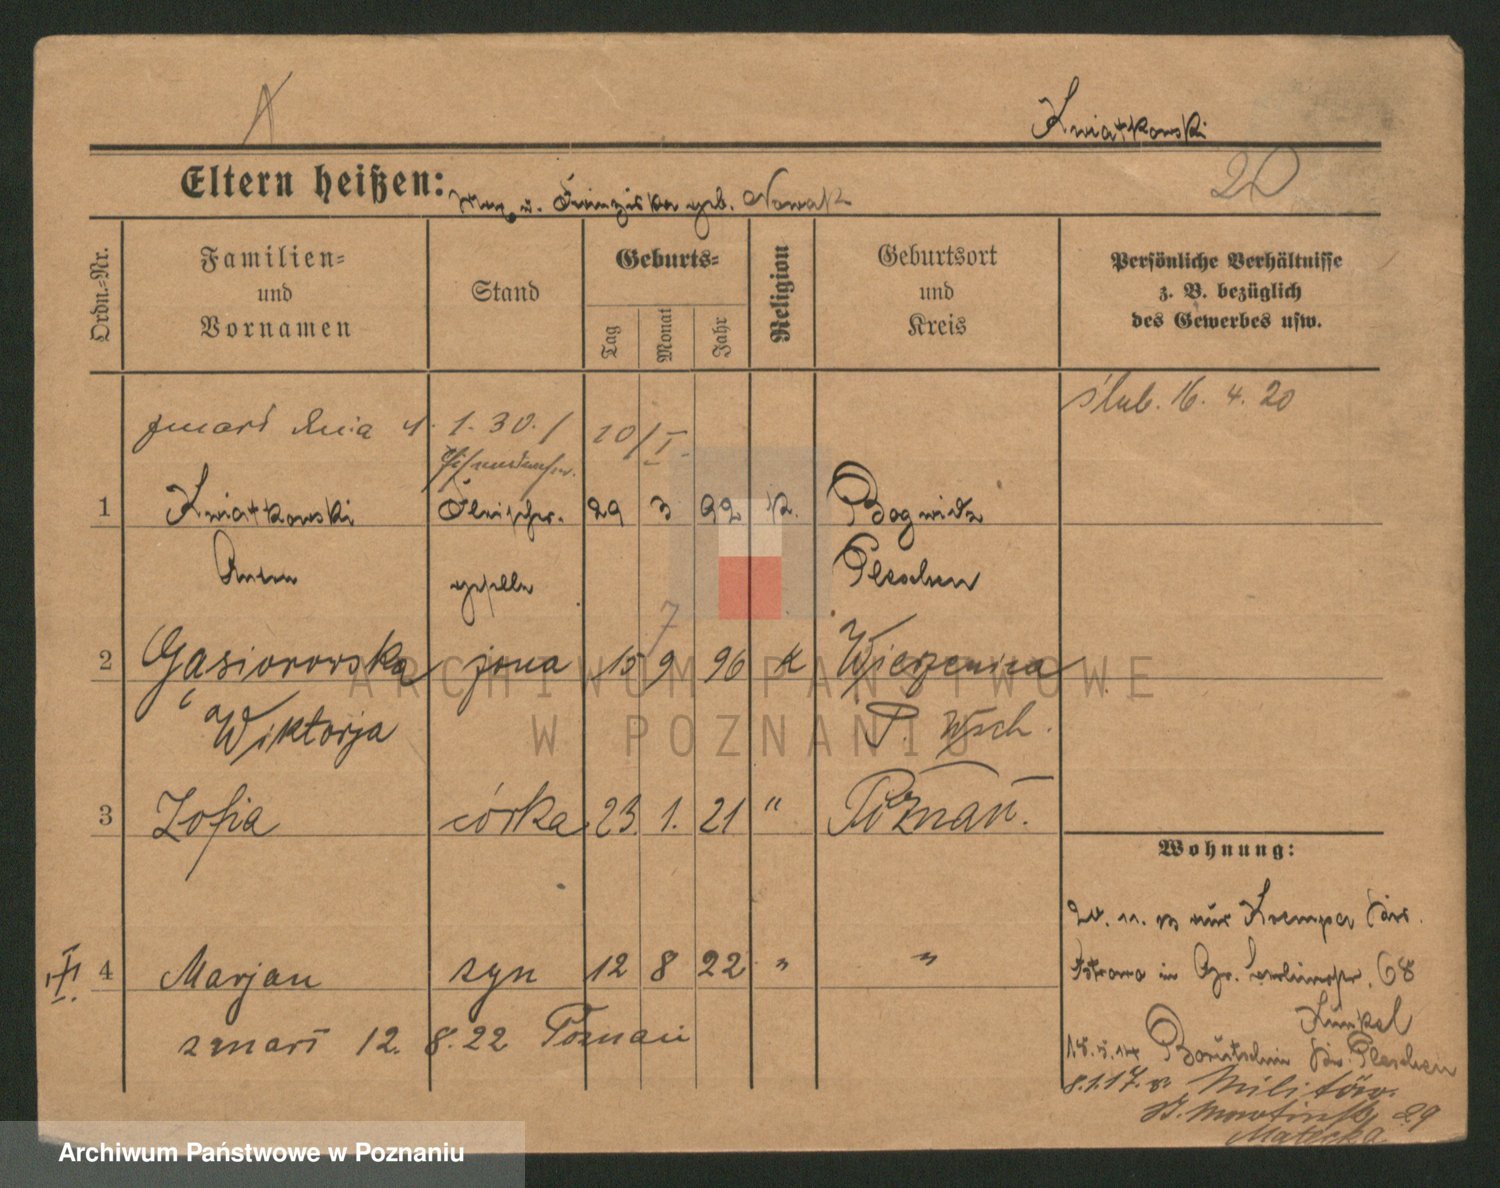 Kwiatkowski
Eltern heißen: u. Franziska geb. Nowak
20
Ordn.-Nr.
Familien-
und
Vornamen
Stand
Geburts-
Tag
Monat
Jahr
Religion
Geburtsort
und
Kreis
Persönliche Verhältnisse
z. B. bezüglich
des Gewerbes usw.
ślub. 16. 4. 20
zmarł dnia 4. 1. 30. / 10/I.
1 Kwiatkowski Fleischer- 29 3 92 K. Bogwidz
geselle Pleschen
7
2 Gąsiorowska żona 15 9 96 K Wierzenica
Wiktorja P. Wsch.
3 Zofia córka 23. 1. 21 " Poznań.
Wohnung:
20. 11. 13 aus Krempa Kr.
4 Marjan syn 12 8 22 " "
Ostrowo in Gr. Berlinerstr. 68
Kunkel
zmarł 12. 8. 22 Poznań
18. 5. 14 Borutschin Kr. Pleschen
8.1.17. v. Militär.
St. Martinstr. 29
Matecka
ARCHIWUM PAŃSTWOWE
W POZNANIU
Archiwum Państwowe w Poznaniu